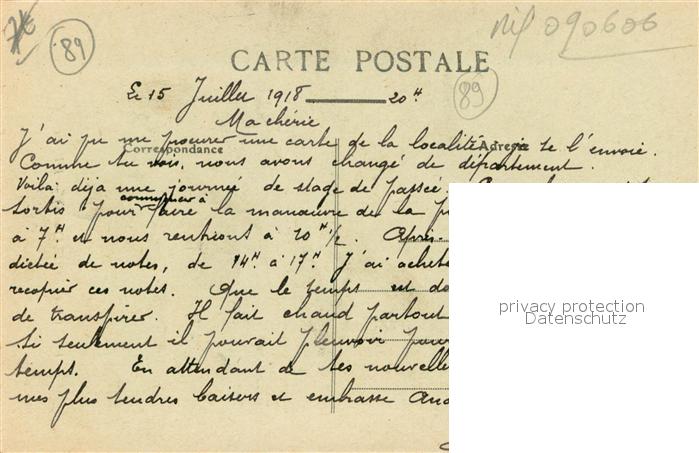 nif 090606
89
CARTE POSTALE
89
Le 15 Juillet 1918 20H
Ma chérie
J'ai pu me procurer une carte de la localité je te l'envoie.
Correspondance Adresse
Comme tu vois, nous avons changé de département.
Voilà déja une journée de stage de passée.
commencer à
sortis pour faire la manœuvre de la
à 7H et nous rentrions à 10H1/2. Après-
dictée de notes, de 14H à 17H. J'ai acheté
recopier ces notes. Que le temps est
de transpirer. Il fait chaud partout
Si seulement il pouvait pleuvoir pour
temps. En attendant de tes nouvelles
mes plus tendres baisers et embrasse
privacy protection
Datenschutz